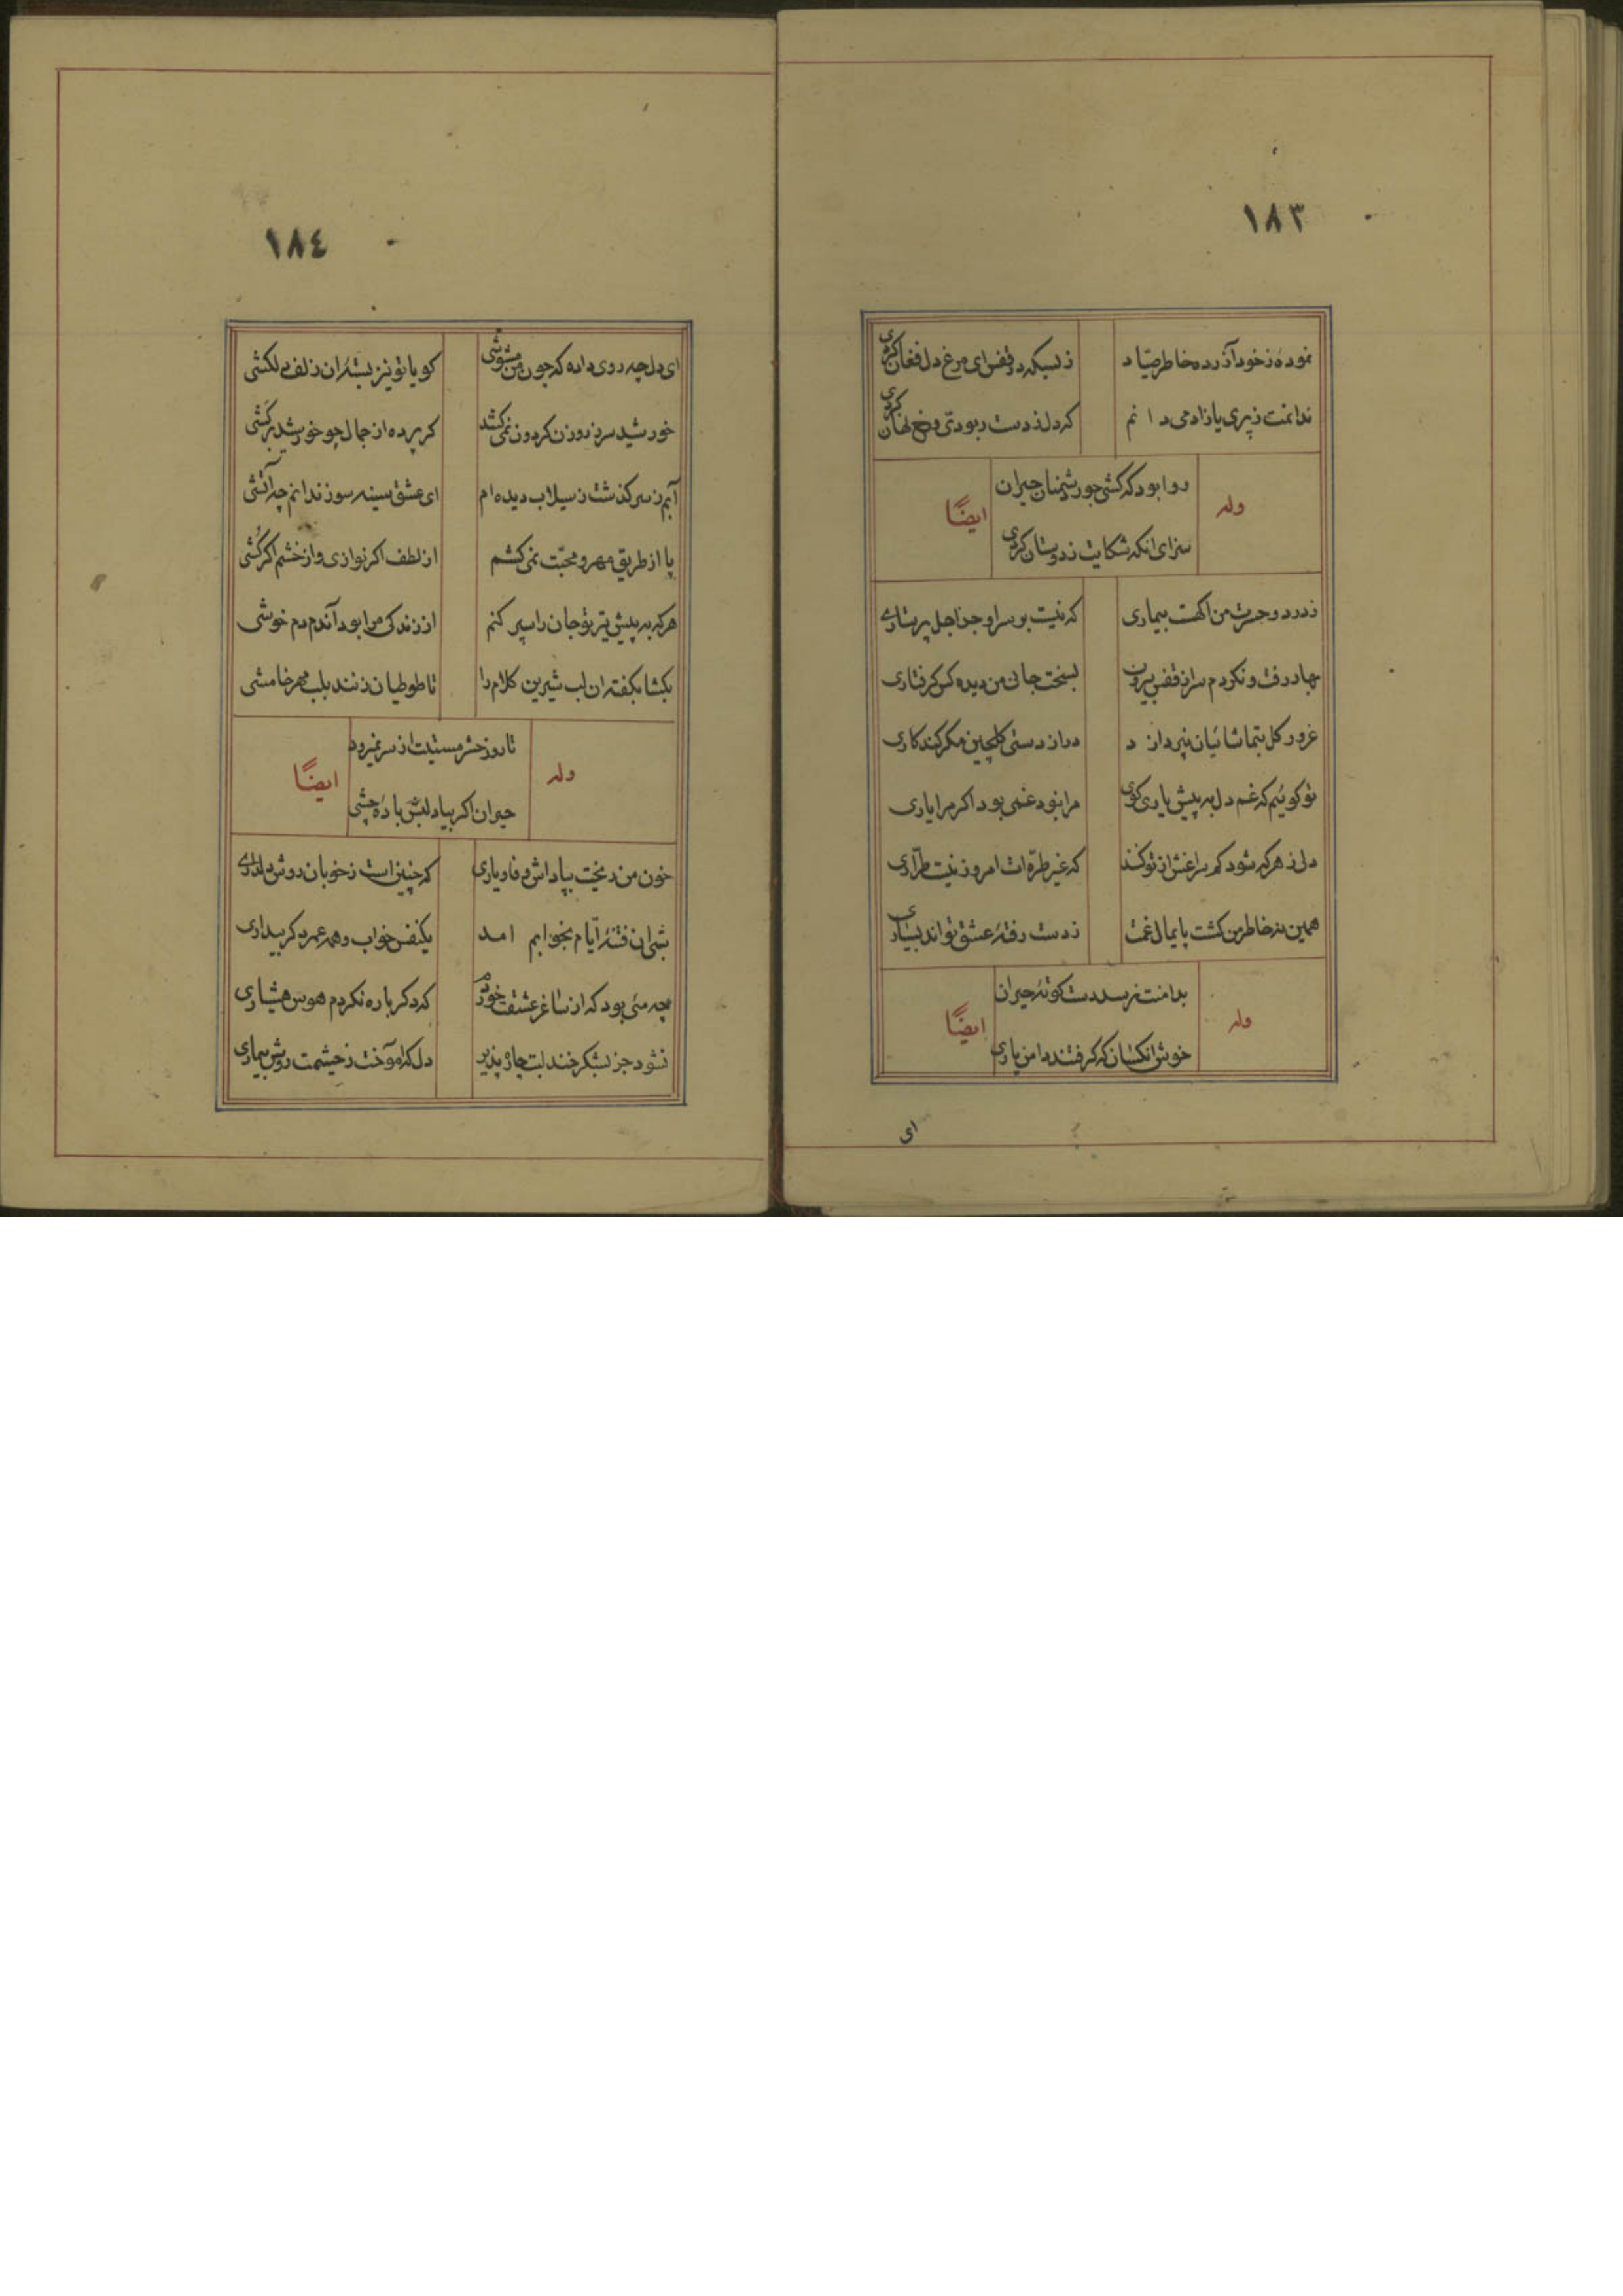 ١٨٣
نموده ز خود آزرده خاطر صیّاد
ز بسکه در قفس ای مرغ دل فغان کردی
ندانمت ز پری یا ز ادمی دانم
که دل ز دست ربودی و رخ نهان کردی
وله
روا بود که کشی جور دشمنان حیران
ایضًا
سزای انکه شکایت ز دوستان کردی
ز درد و حسرت من اکهت بیماری
که نیست بر سر او جز اجل پرستاری
بهار رفت و نکردم سر از قفس بیرون
بسخت جانی من دیده کس کرفتاری
غرور کل بتماشائیان نپردازد
دراز دستی کلچین مکر کند کاری
تو کوئیم که غم دل به پیش یاری کوی
مرا نبود غمی بود اکر مرا یاری
دلی ز هر که شود کم سراغش از تو کنند
که غیر طرّه‌ات امروز نیست طرّاری
همین نه خاطر من کشت پایمال غمت
ز دست رفتهٔ عشق تواند بسیاری
وله
بدامنت نرسد دست کوته حیران
ایضًا
خوش انکسان که کرفتند دامن یاری
ای
١٨٤
ای دل چه روی داده که چون من مشوشی
کویا تو نیز بستهٔ ان زلف دلکشی
خورشید سر ز روزن کردون نمی‌کشد
کر پرده از جمال چو خورشید برکشی
آبم ز سر کذشت ز سیلاب دیده‌ام
ای عشق سینه سوز ندانم چه آتشی
پا از طریق مهر و محبّت نمی‌کشم
از لطف اکر نوازی و از خشم اکر کشی
هرکه به پیش تیر تو جان را سپر کنم
از زندکی مرا بود آندم دم خوشی
بکشا بکفته ان لب شیرین کلام را
تا طوطیان زنند بلب مهر خامشی
وله
تا روز حشر مستیت از سر نمیرود
ایضًا
حیران اکر بیاد لبش باده‌ٔ چشی
خون من ریخت بپاداش وفا و یاری
که چنین است ز خوبان روش دلداری
بشی ان فتنهٔ ایّام بخوابم امد
یکنفس خواب و همه عمر دکر بیداری
چه مئی بود که از ساغر عشقت خوردم
که دکر باره نکردم هوس هشیاری
نشود جز بشکرخند لبت چاره پذیر
دل که اموخت ز چشمت روش بیماری